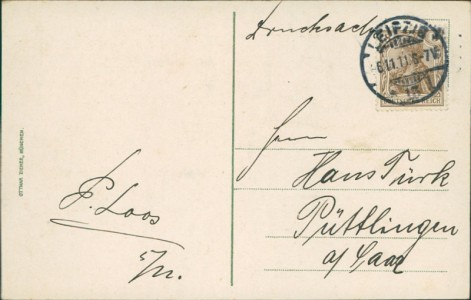 Drucksache
LEIPZIG
13
DEUTSCHES REICH
Herrn
Hans Türk
Püttlingen
a/ Saar
P. Loos
OTTMAR ZIEHER, MÜNCHEN.